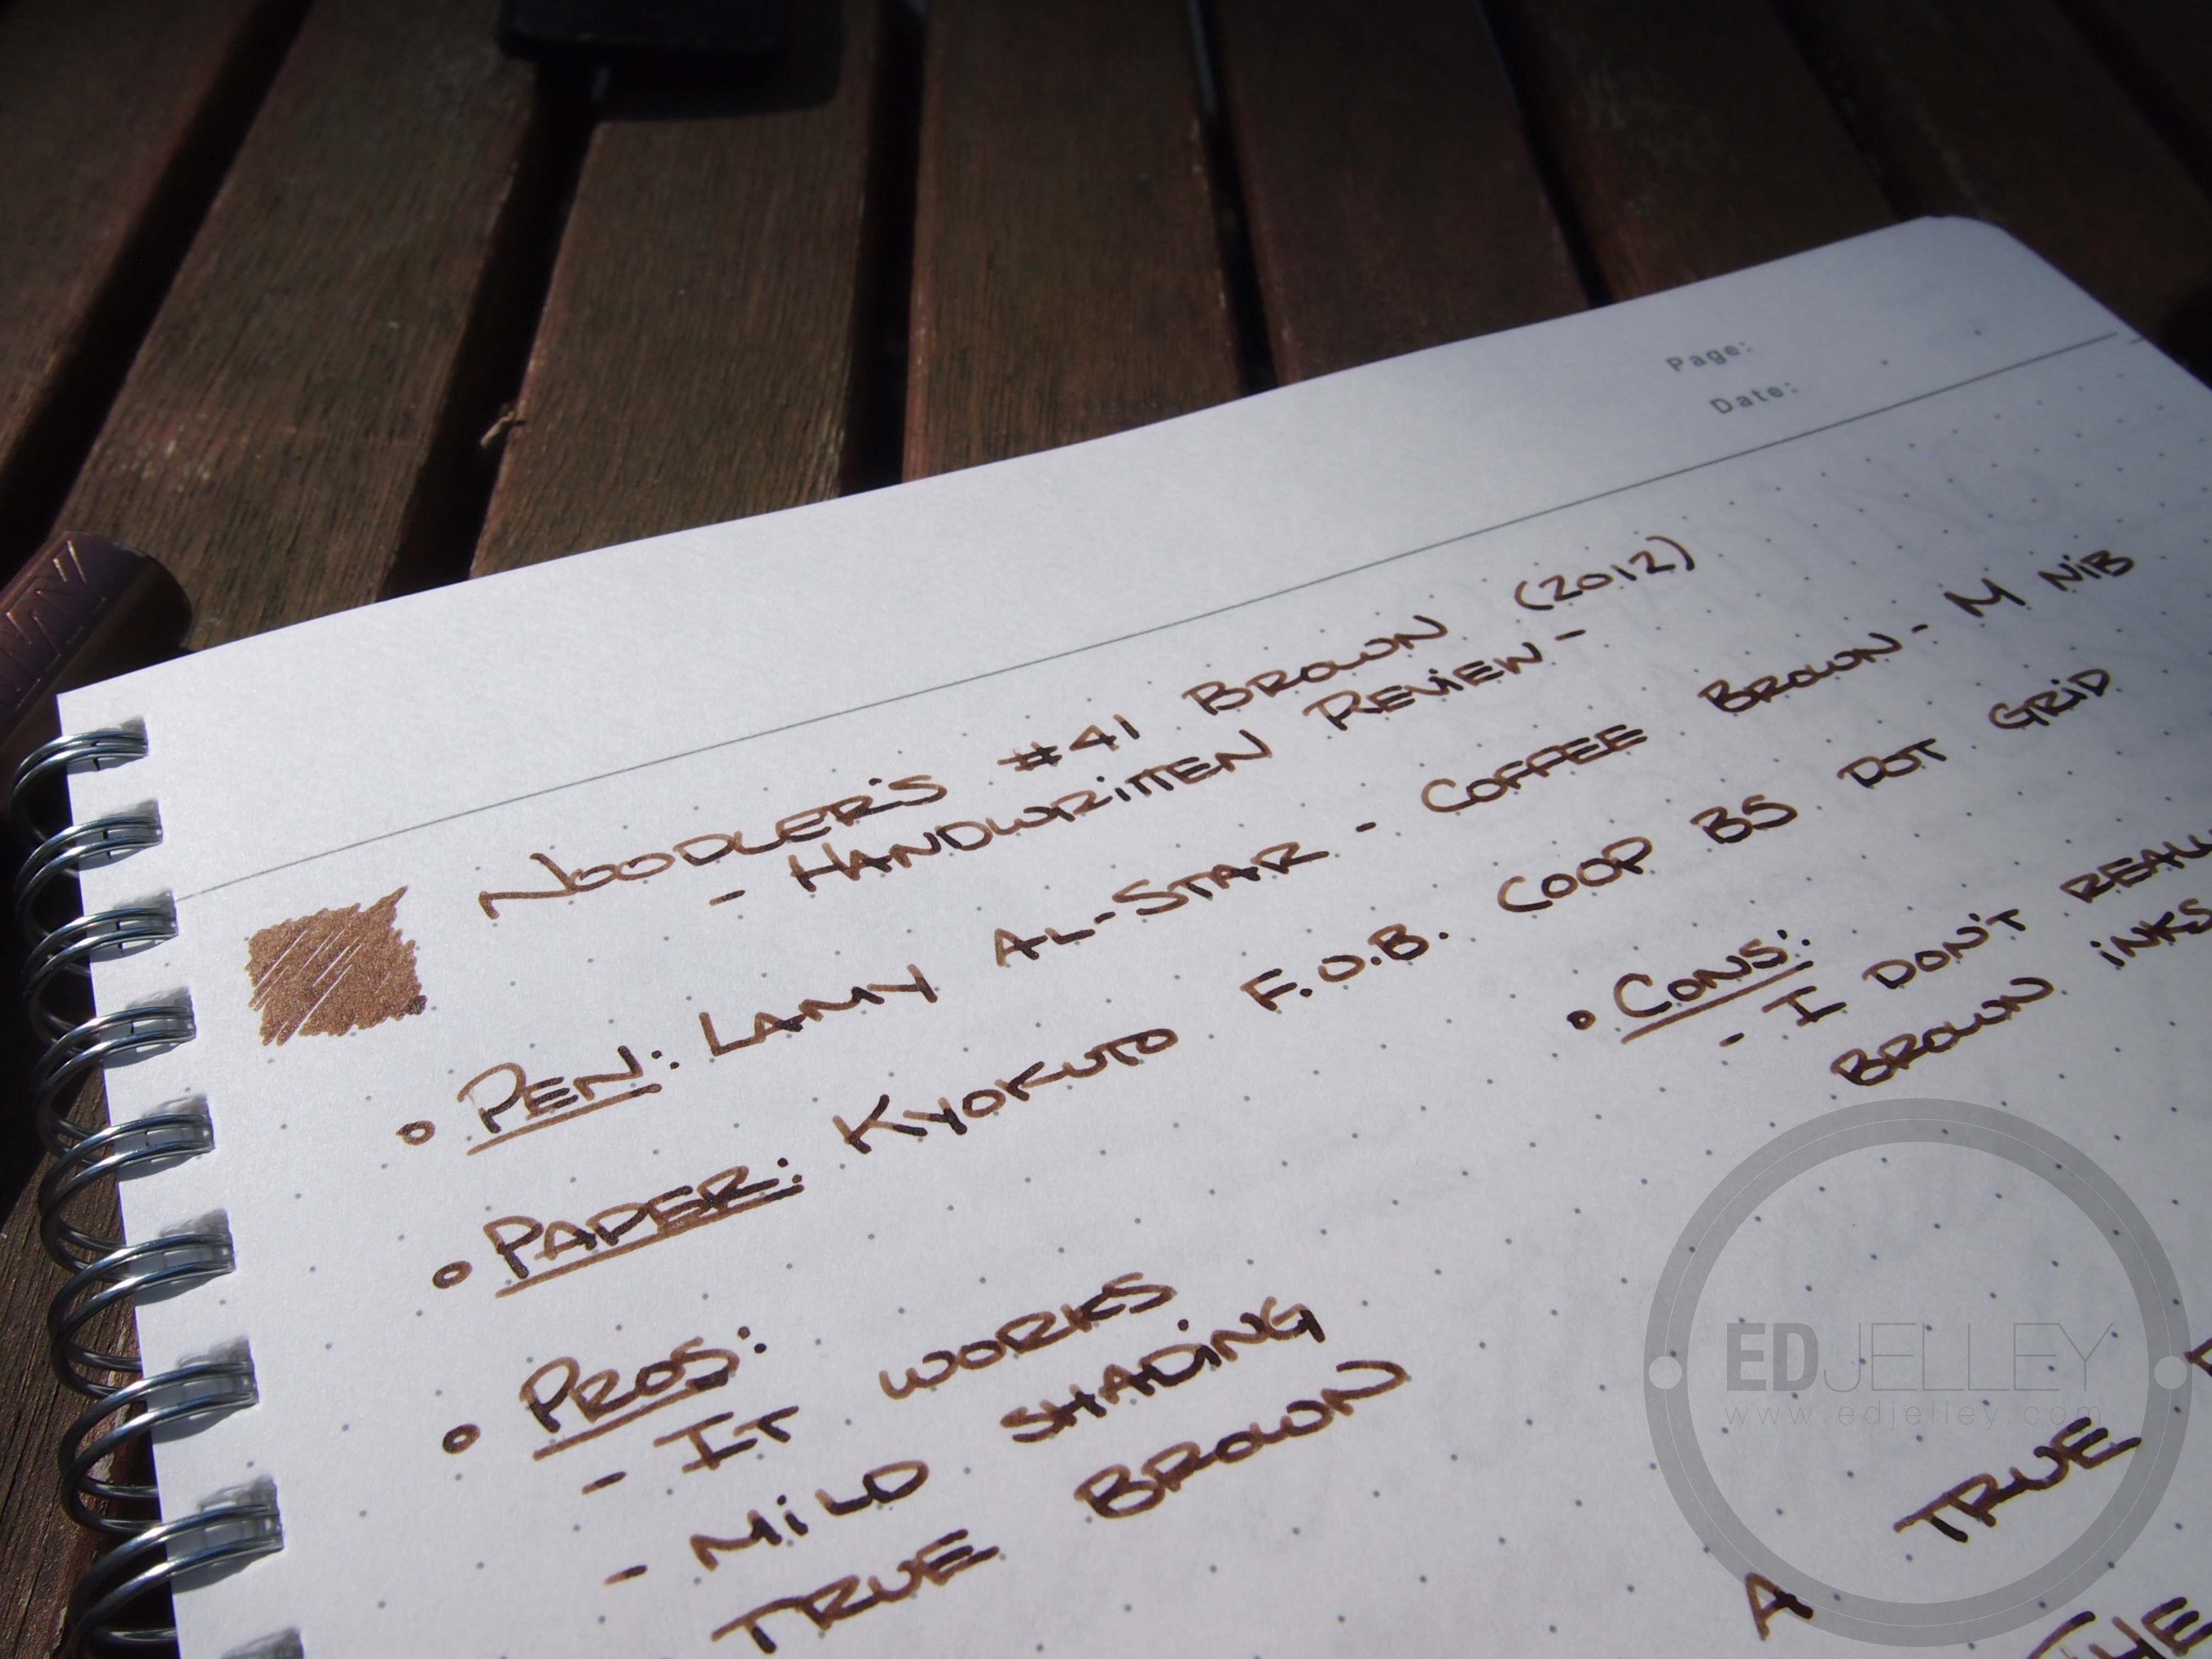 Page:
Date:
NOODLER'S #41 BROWN (2012)
- HANDWRITTEN REVIEW -
• PEN: LAMY AL-STAR - COFFEE BROWN - M NIB
• PAPER: KYOKUTO F.O.B. COOP B5 DOT GRID
• PROS:
- IT WORKS
- MILD SHADING
TRUE BROWN
• CONS:
- I DON'T
BROWN INKS
A TRUE
THE
EDJELLEY
www.edjelley.com